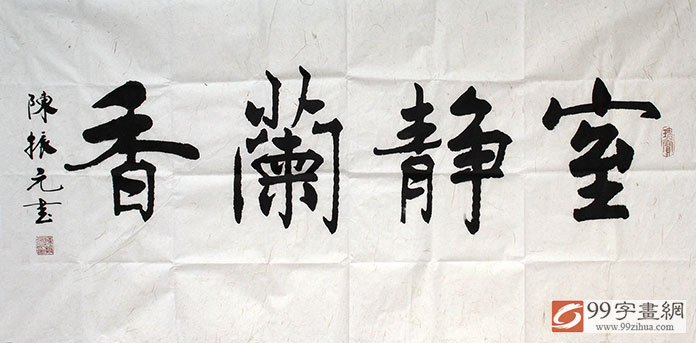 室静蘭香
陳振元书
99字畫網
www.99zihua.com